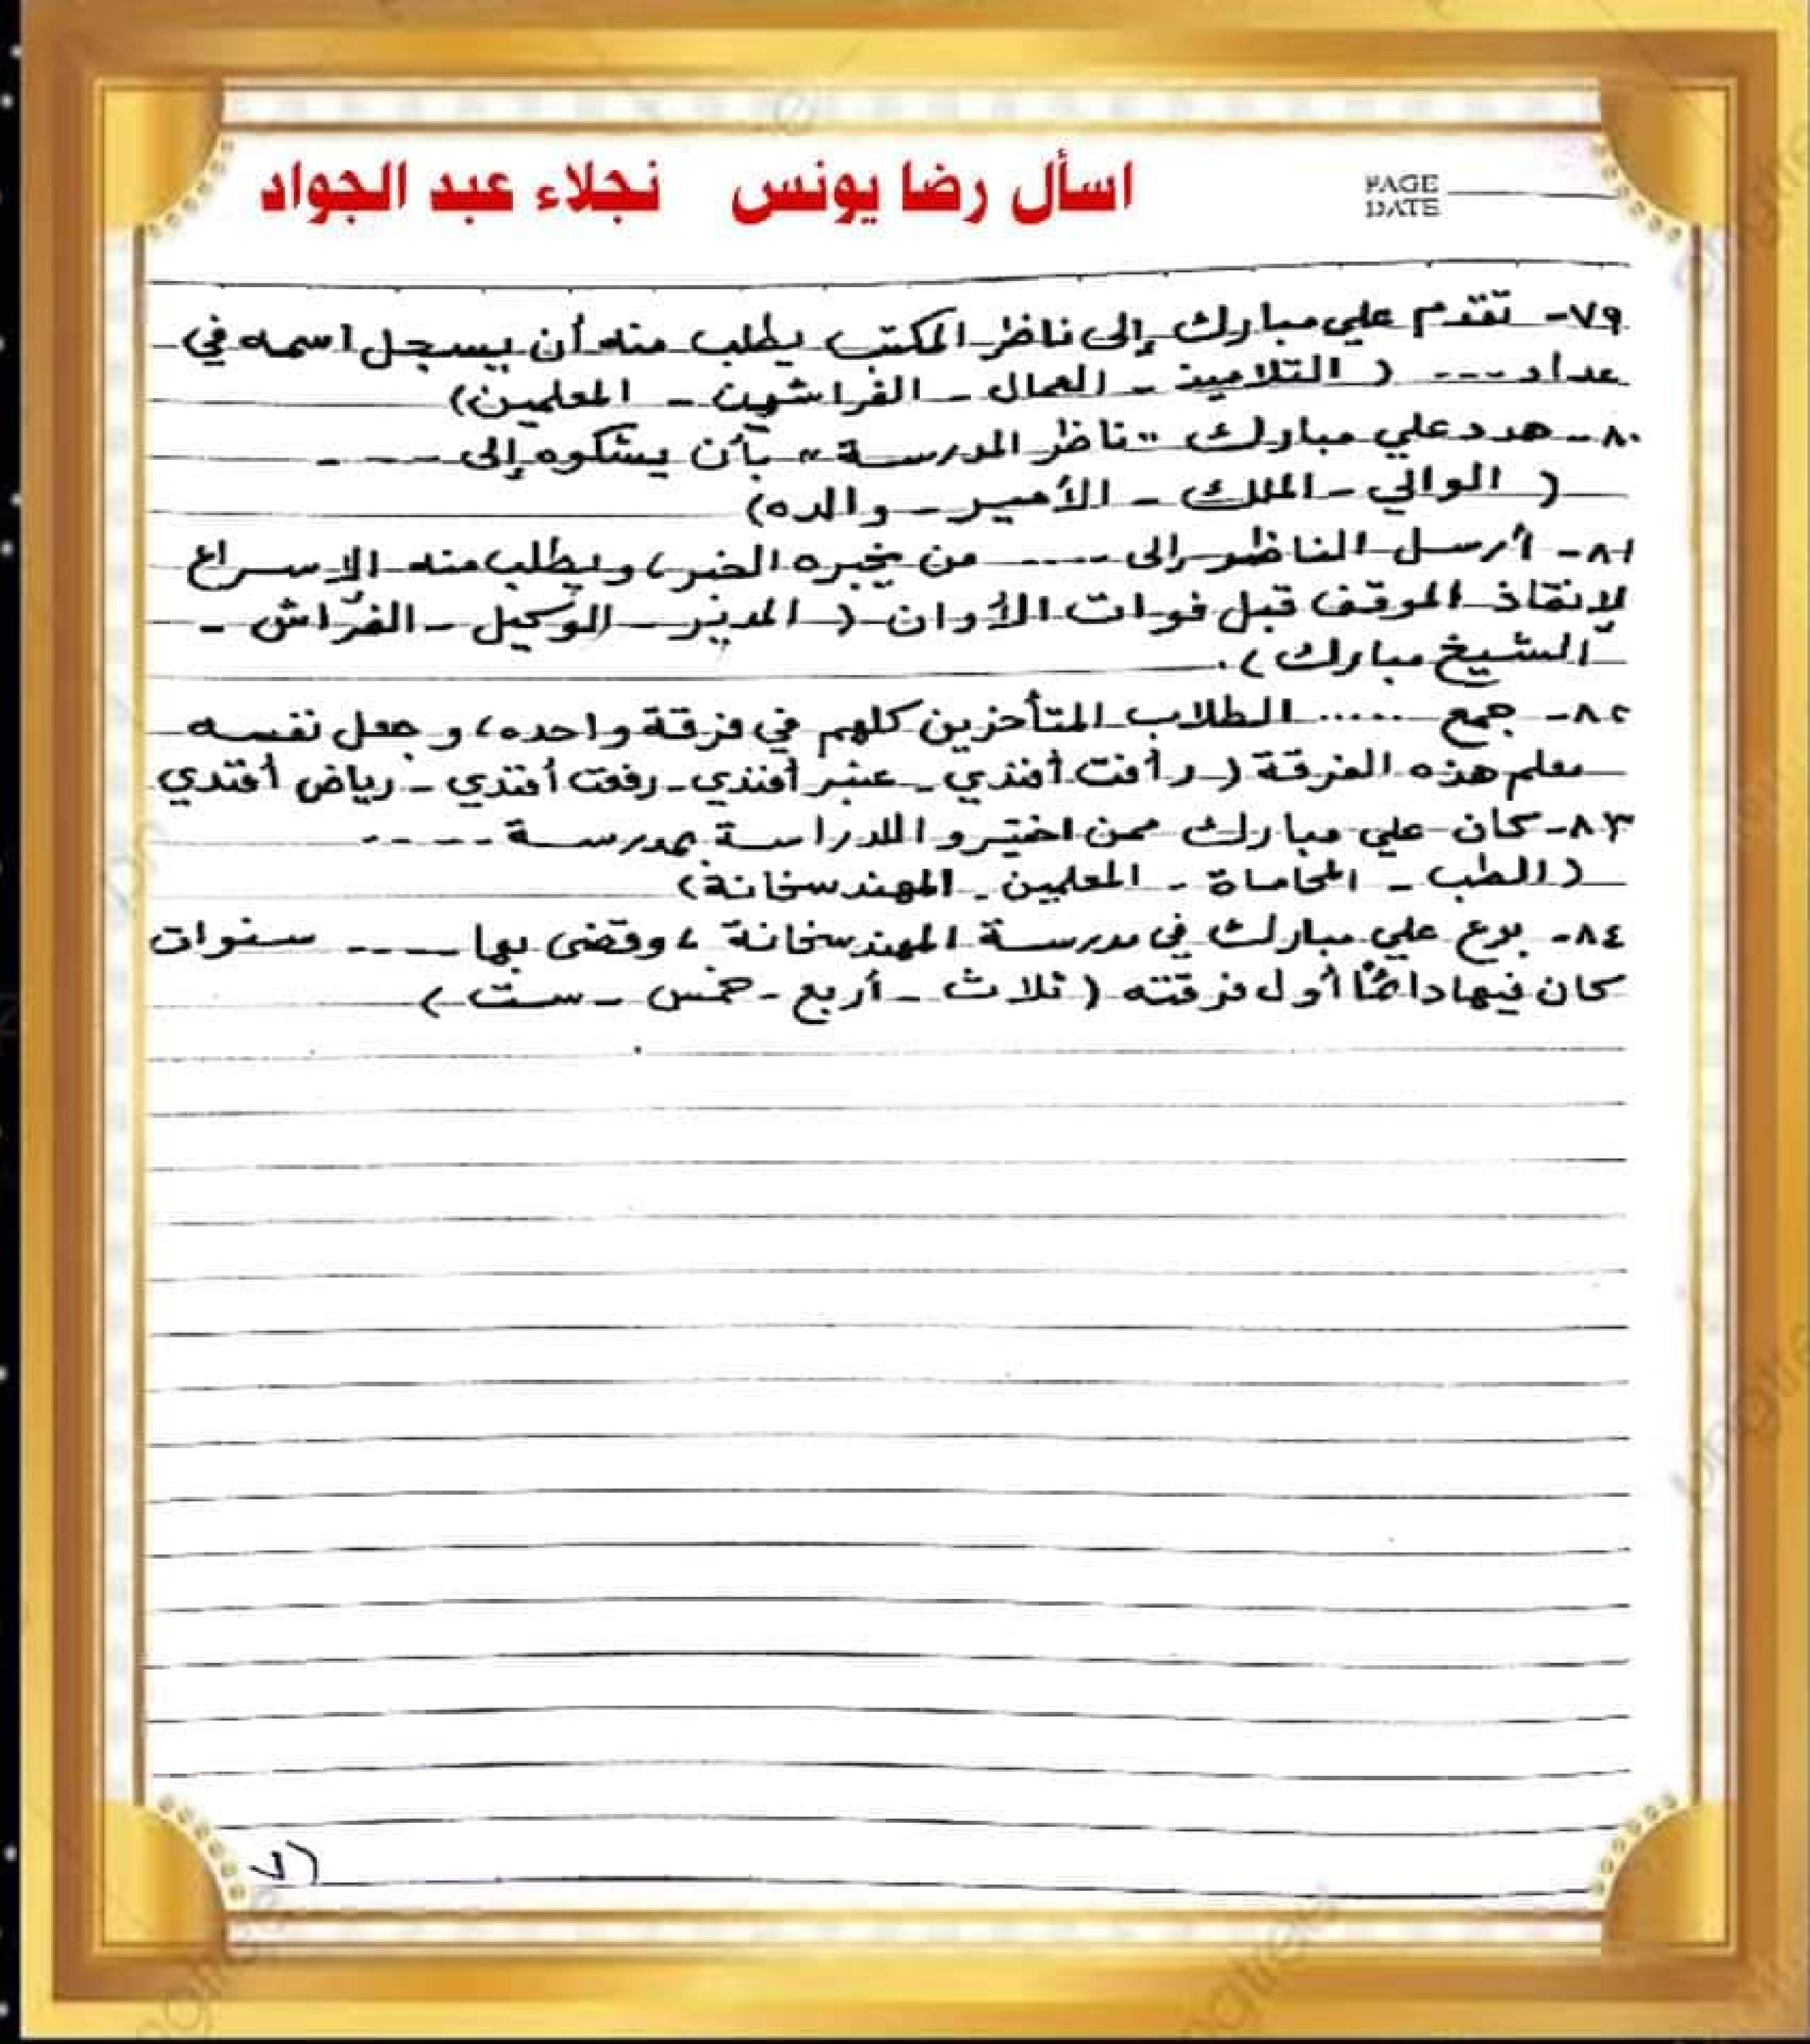 اسأل رضا يونس نجلاء عبد الجواد
PAGE
DATE
٧٩- تقدم علي مبارك إلى ناظر المكتب يطلب منه أن يسجل اسمه في
عداد ---- ( التلاميذ - العمال - الفراشين - المعلمين)
٨٠- هدد علي مبارك "ناظر المدرسة" بأن يشكوه إلى ----
( الوالي - الملك - الأمير - والده)
٨١- أرسل الناظر إلى ---- من يخبره الخبر، ويطلب منه الإسراع
لإنقاذ الموقف قبل فوات الأوان ( المدير - الوكيل - الفرّاش -
الشيخ مبارك ).
٨٢- جمع ..... الطلاب المتأخرين كلهم في فرقة واحده، وجعل نفسه
معلم هذه الفرقة ( رأفت أفندي - عنبر أفندي - رفعت أفندي - رياض أفندي
٨٣- كان علي مبارك ممن اختيروا للدراسة بمدرسة -----
( الطب - المحاماة - المعلمين - المهندسخانة)
٨٤- برع علي مبارك في مدرسة المهندسخانة، وقضى بها ---- سنوات
كان فيها دائمًا أول فرقته ( ثلاث - أربع - خمس - ست )
(٧